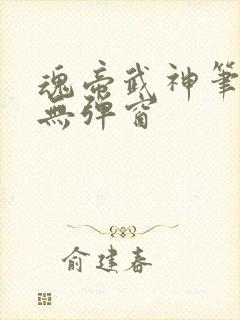 魂帝武神筆
無彈窗
俞建春